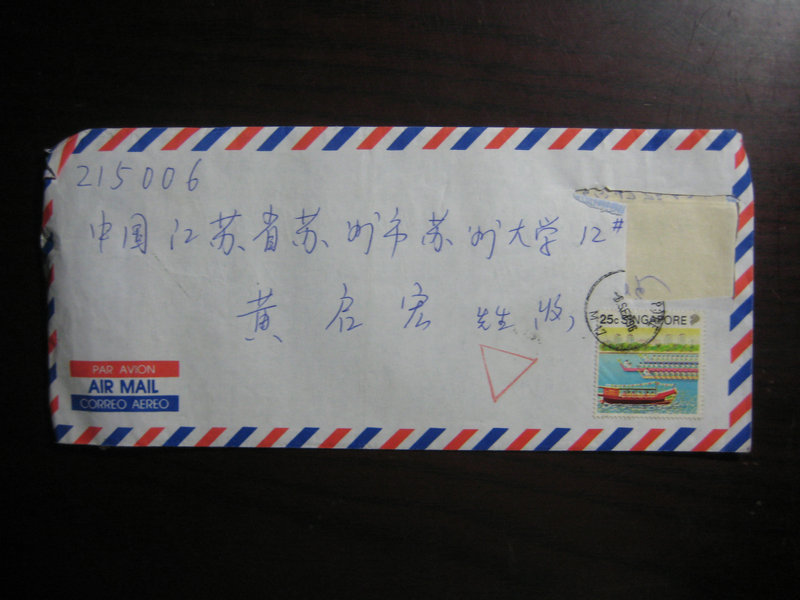 215006
中国江苏省苏州市苏州大学12#
黄启宏 先生 收
25c SINGAPORE
PAR AVION
AIR MAIL
CORREO AEREO